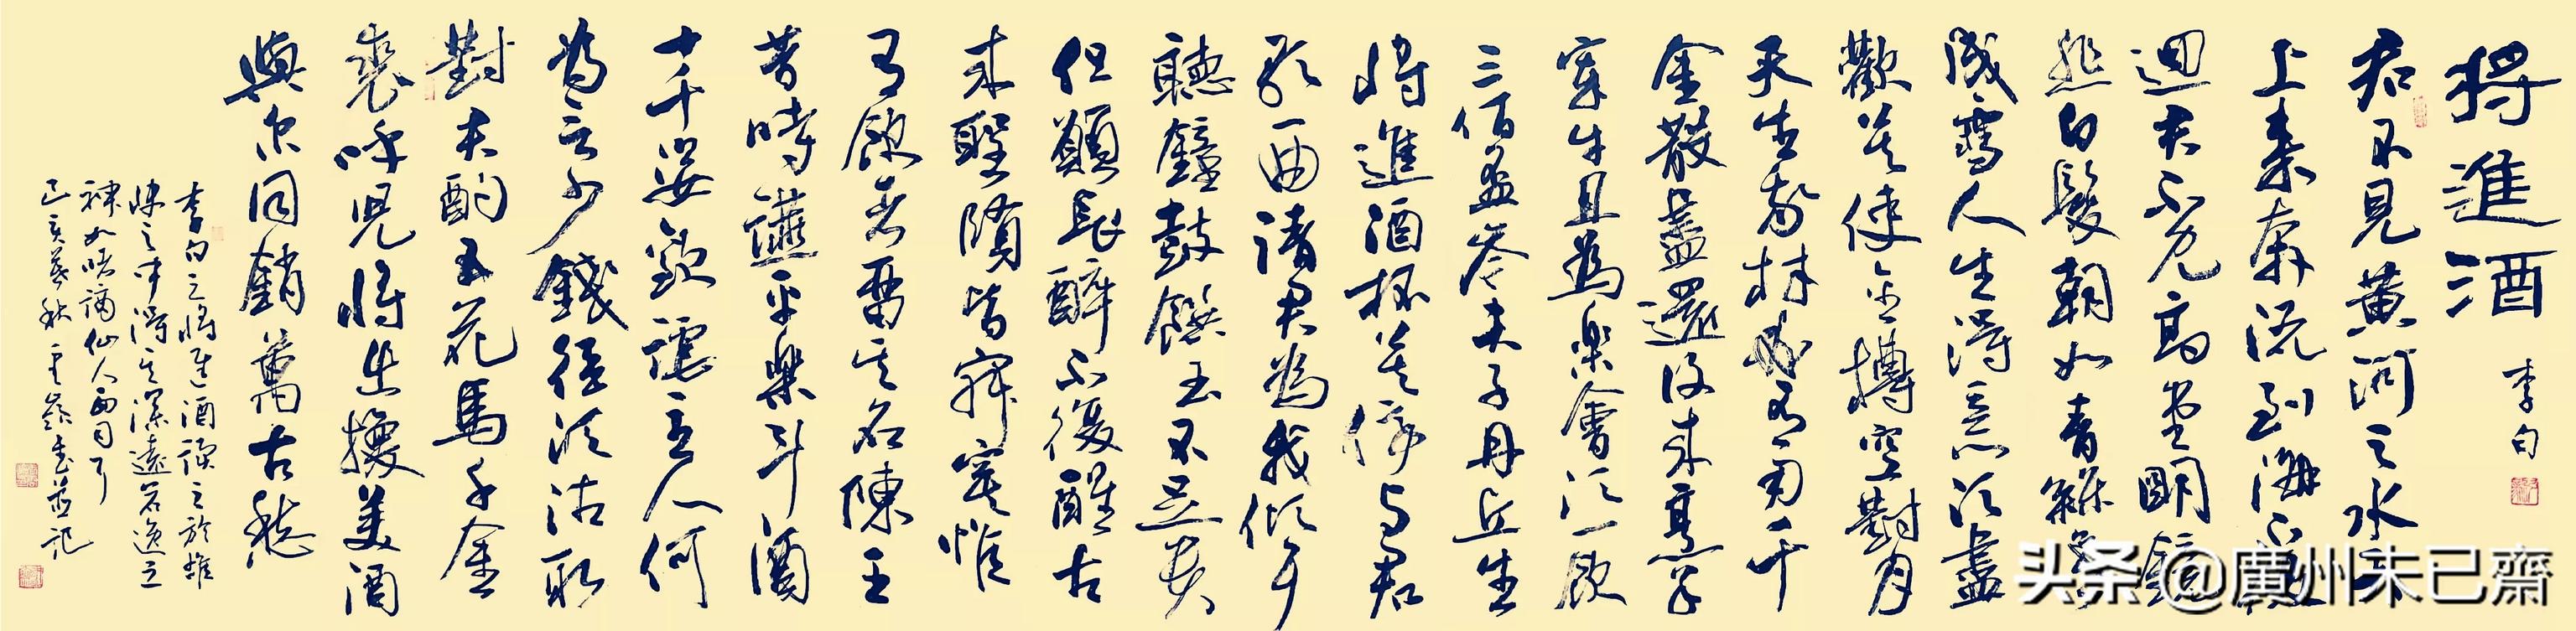 將進酒
李白
君不見黄河之水天
上来奔流到海不復
迴君不見高堂明鏡
悲白髮朝如青絲暮
成雪人生得意須盡
歡莫使金樽空對月
天生我材必有用千
金散盡還復来烹羊
宰牛且為樂會須一飲
三佰盃岑夫子丹丘生
將進酒杯莫停與君
歌一曲請君為我傾耳
聽鐘鼓饌玉不足貴
但願長醉不復醒古
来聖賢皆寂寞惟
有飲者留其名陳王
昔時讌平樂斗酒
十千恣歡謔主人何
為言少錢徑須沽取
對君酌五花馬千金
裘呼兒將出換美酒
與尔同銷萬古愁
李白之將進酒讀之於雄
快之中得其深遠宕逸之
神如晤謫仙人面目了
己亥暮秋並記
头条@廣州未已齋